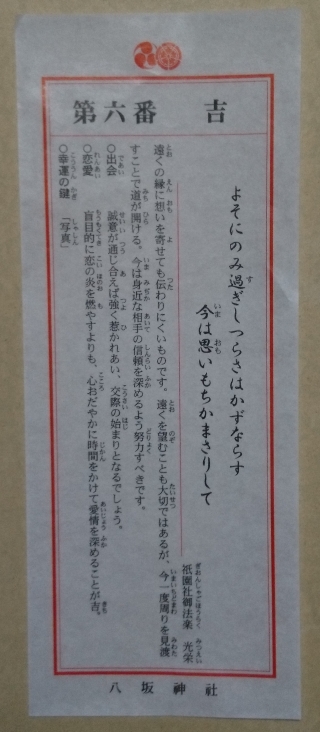 第六番　吉
よそにのみ過ぎしつらさはかずならす
今は思いもちかまさりして
祇園社御法楽　光栄
遠くの縁に想いを寄せても伝わりにくいものです。遠くを望むことも大切ではあるが、今一度周りを見渡
すことで道が開ける。今は身近な相手の信頼を深めるよう努力すべきです。
○出会　誠意が通じ合えば強く惹かれあい、交際の始まりとなるでしょう。
○恋愛　盲目的に恋の炎を燃やすよりも、心おだやかに時間をかけて愛情を深めることが吉。
○幸運の鍵　「写真」
八坂神社